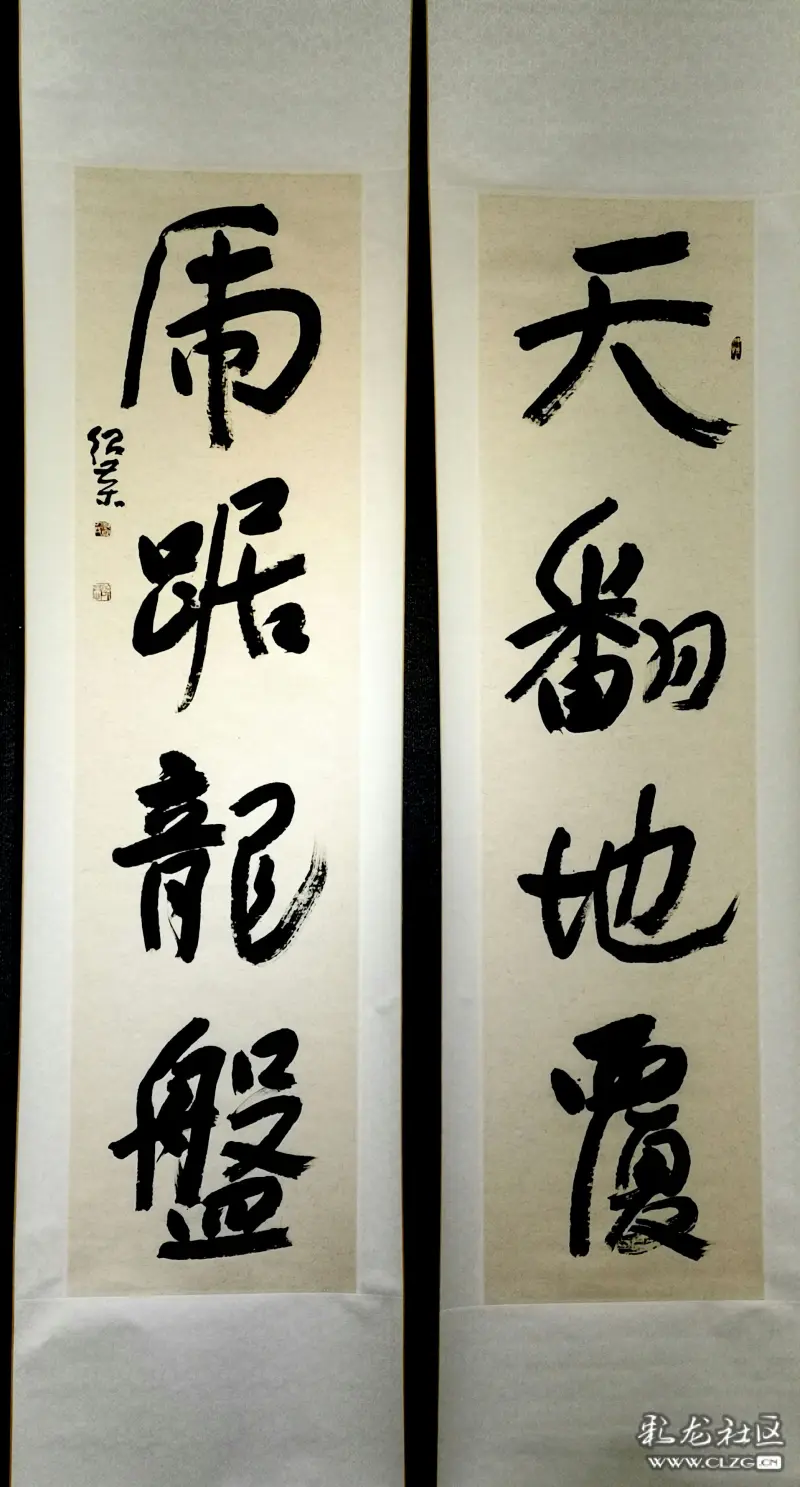 天翻地覆
虎踞龍盤
彩龙社区
WWW.CLZG.CN